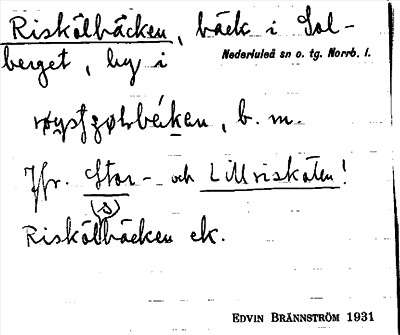 Riskälbäcken, bäck i Sol-
berget, by i Nederluleå sn o. tg. Norrb. l.
b. m.
Jfr. Stor- och Lillriskälen!
(s)
Riskälbäcken ek.
EDVIN BRÄNNSTRÖM 1931